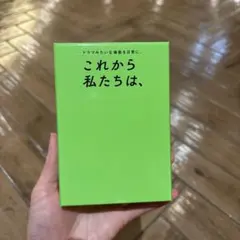 ドラマみたいな場面を日常に。
これから
私たちは、